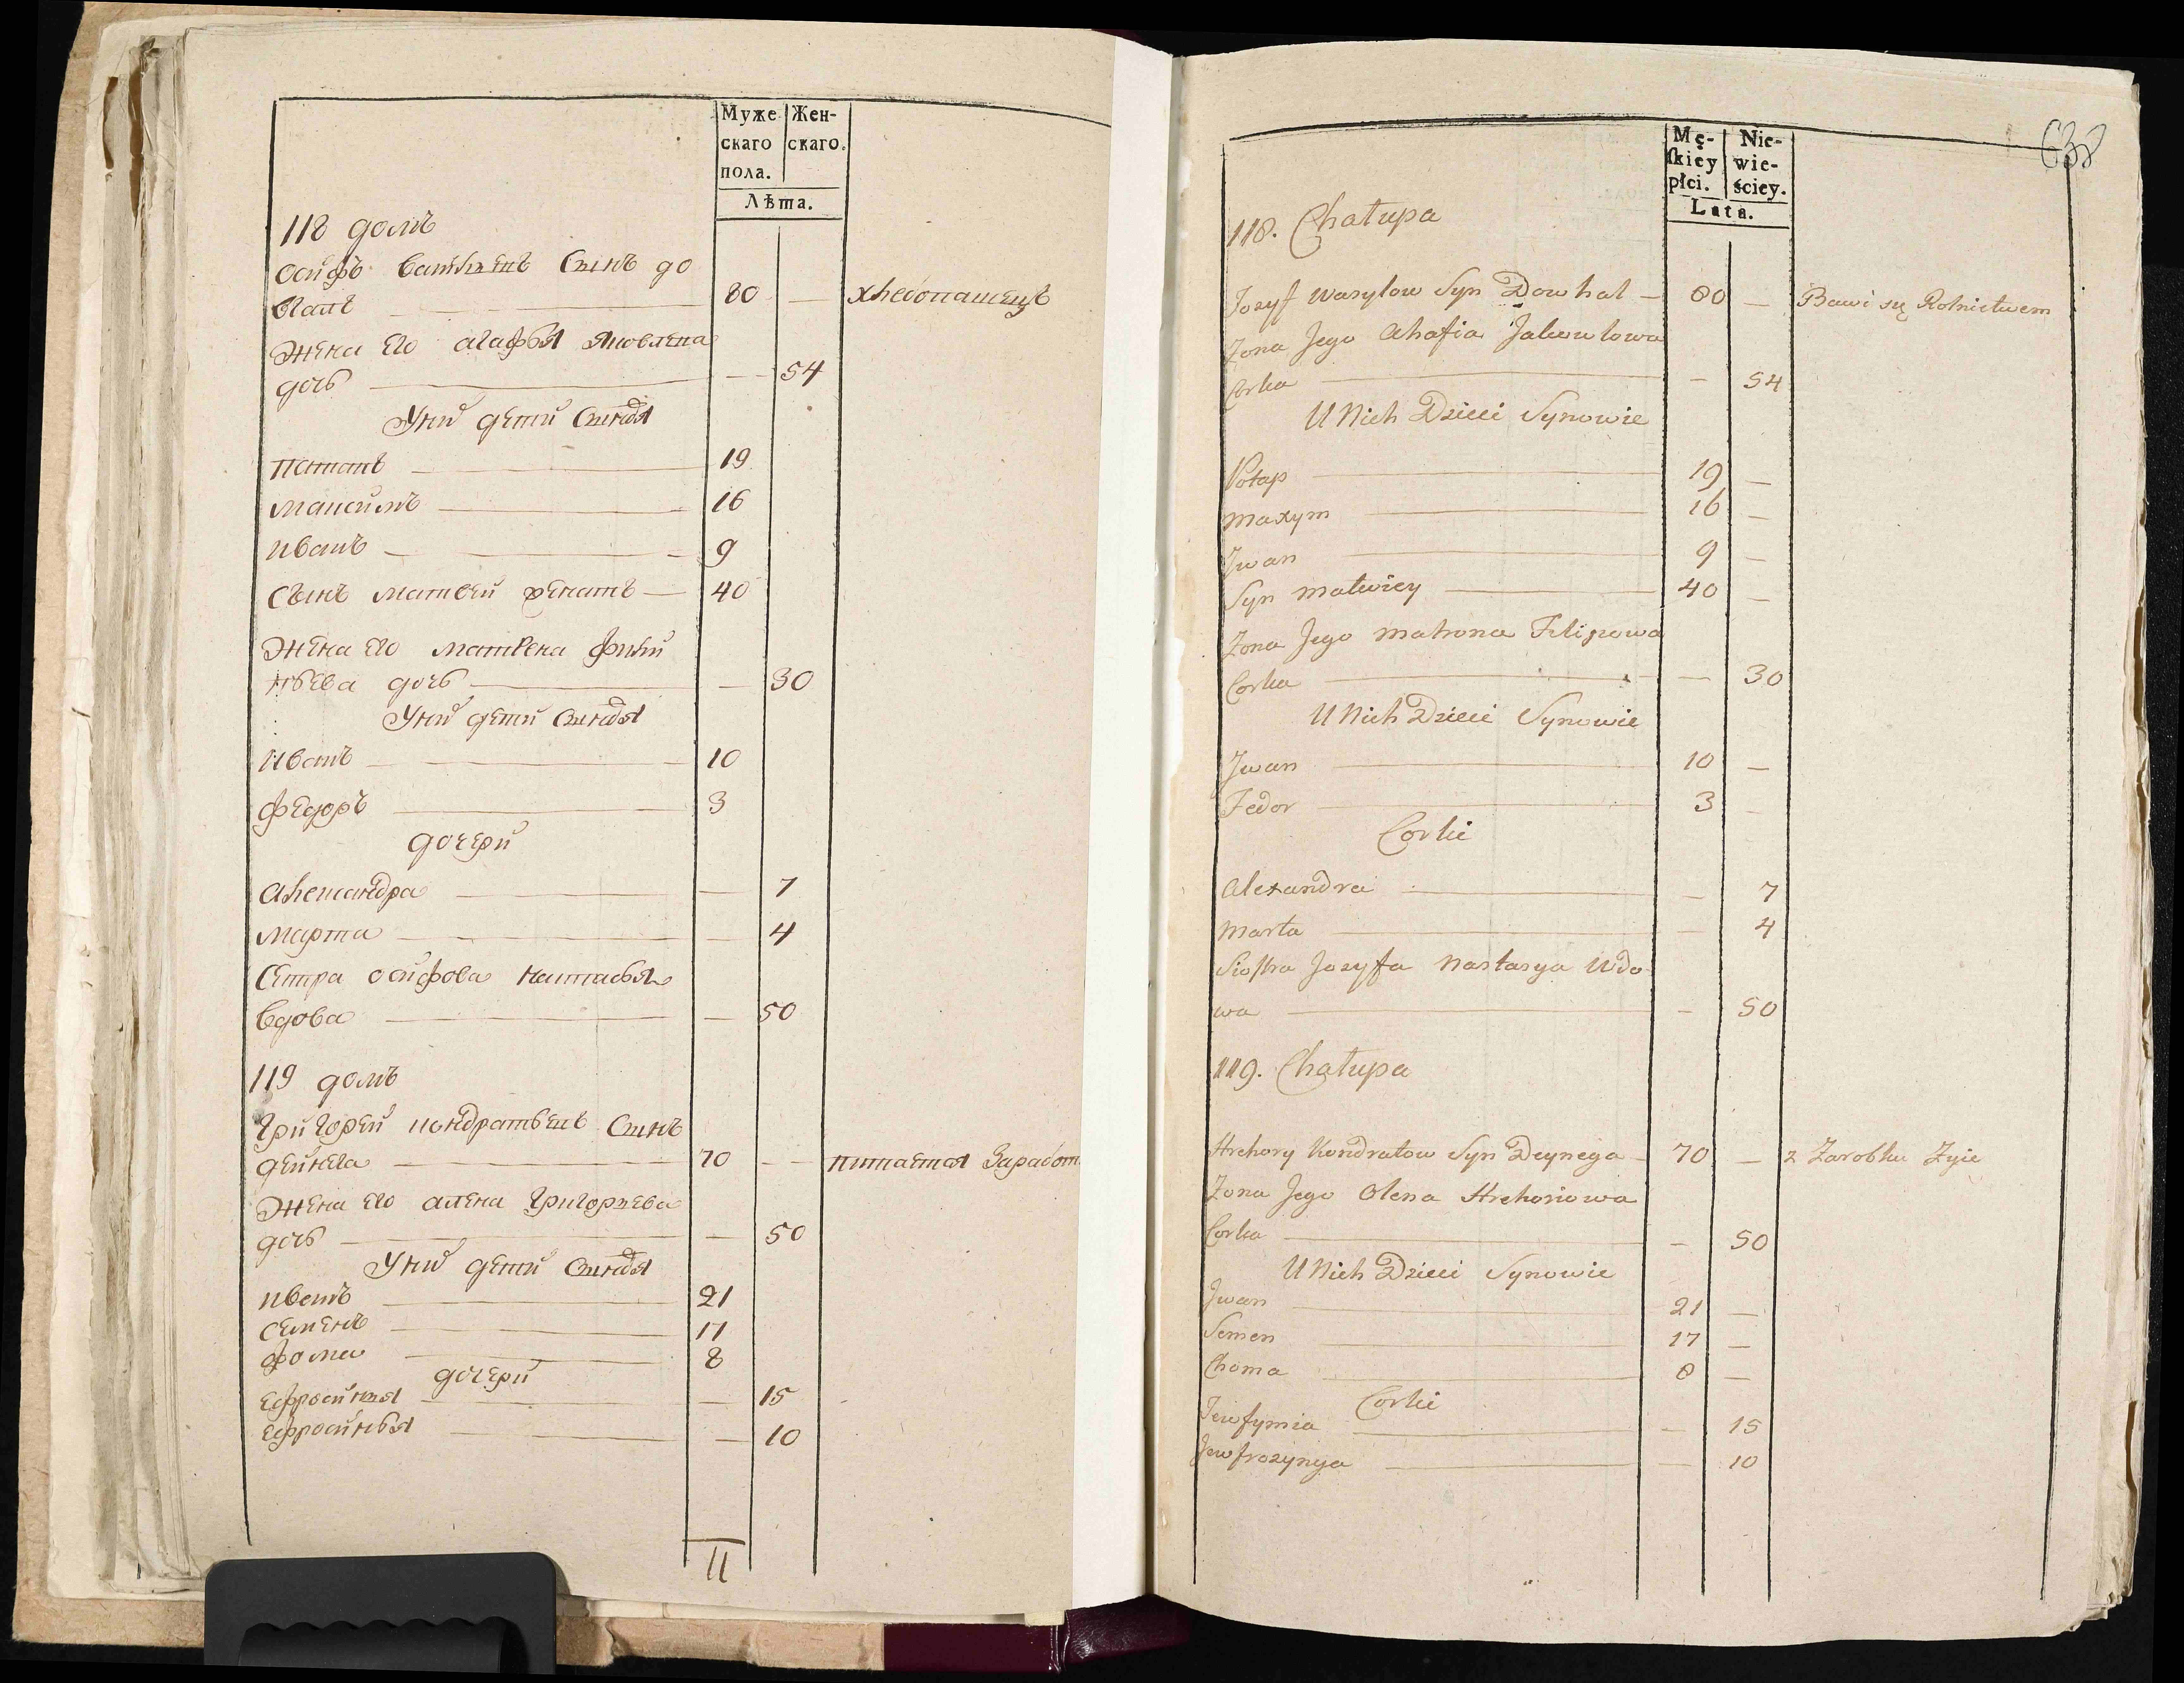 Муже
скаго
пола.
Жен-
скаго.
Лѣта.
118 домъ
осифъ васильевъ Сынъ до
вгаль 80 — хлебопашецъ
Жена Его агафья яковлева
дочь — 54
У них дети Сыновья
Патапъ 19
максимъ 16
иванъ 9
Сынъ матвей 40
Жена Его матрена фили
пьева дочь — 30
У них дети Сыновья
иванъ 10
федоръ 3
дочери
александра — 7
марта — 4
Сестра осифова настасья
вдова — 50
119 домъ
Григорей кондратьевъ Сынъ
дейнега 70 — питается Заработ
Жена Его алена Григорьева
дочь — 50
У них дети Сыновья
иванъ 21
семенъ 17
фома 8
дочери
— 15
ефросинья — 10
11
638
Mę-
ſkiey
płci.
Nie-
wie-
ściey.
Lata.
118. Chałupa
Jozyf Wasylow Syn Dowhal — 80 — Bawi się Rolnictwem
Zona Jego Ahafia Jakowlowa
Corka — 54
U Nich Dzieci Synowie
Potap 19 —
Maxym 16 —
Jwan 9 —
Syn Matwiey 40 —
Zona Jego Matrona Filipowa
Corka — 30
U Nich Dzieci Synowie
Jwan 10 —
Fedor 3 —
Corki
Alexandra — 7
Marta — 4
Siostra Jozyfa Nastasya Wdo
wa — 50
119. Chałupa
Hrehory Kondratow Syn Deynega — 70 — z Zarobku Zyie
Zona Jego Olena Hrehoriowa
Corka — 50
U Nich Dzieci Synowie
Jwan 21 —
Semen 17 —
Choma 8 —
Corki
Jewfymia — 15
Jewfrozynya — 10